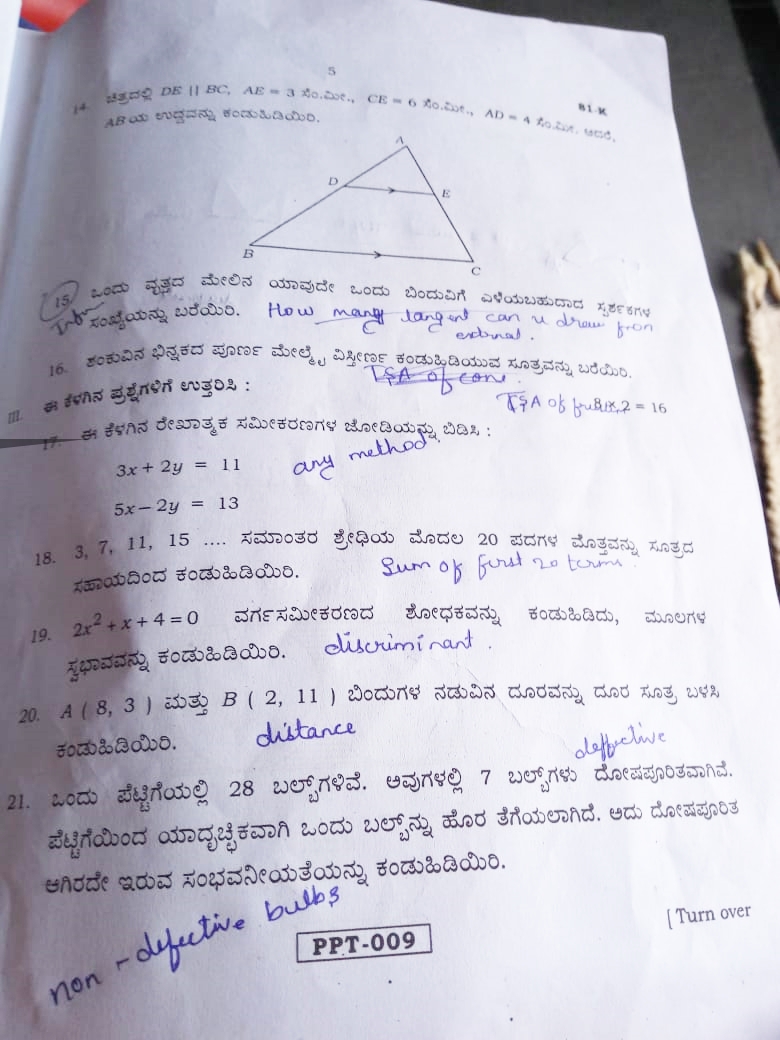 5
81-K
14. ಚಿತ್ರದಲ್ಲಿ DE || BC, AE = 3 ಸೆಂ.ಮೀ., CE = 6 ಸೆಂ.ಮೀ., AD = 4 ಸೆಂ.ಮೀ. ಆದರೆ,
AB ಯ ಉದ್ದವನ್ನು ಕಂಡುಹಿಡಿಯಿರಿ.
A
D
E
B
C
15. ಒಂದು ವೃತ್ತದ ಮೇಲಿನ ಯಾವುದೇ ಒಂದು ಬಿಂದುವಿಗೆ ಎಳೆಯಬಹುದಾದ ಸ್ಪರ್ಶಕಗಳ
ಸಂಖ್ಯೆಯನ್ನು ಬರೆಯಿರಿ. How many tangent can u draw from
external.
16. ಶಂಕುವಿನ ಭಿನ್ನಕದ ಪೂರ್ಣ ಮೇಲ್ಮೈ ವಿಸ್ತೀರ್ಣ ಕಂಡುಹಿಡಿಯುವ ಸೂತ್ರವನ್ನು ಬರೆಯಿರಿ.
TSA of cone.
III. ಈ ಕೆಳಗಿನ ಪ್ರಶ್ನೆಗಳಿಗೆ ಉತ್ತರಿಸಿ :
TSA of 2 = 16
17. ಈ ಕೆಳಗಿನ ರೇಖಾತ್ಮಕ ಸಮೀಕರಣಗಳ ಜೋಡಿಯನ್ನು ಬಿಡಿಸಿ :
3x + 2y = 11 any method
5x – 2y = 13
18. 3, 7, 11, 15 .... ಸಮಾಂತರ ಶ್ರೇಢಿಯ ಮೊದಲ 20 ಪದಗಳ ಮೊತ್ತವನ್ನು ಸೂತ್ರದ
ಸಹಾಯದಿಂದ ಕಂಡುಹಿಡಿಯಿರಿ. Sum of first 20 terms.
19. 2x² + x + 4 = 0 ವರ್ಗಸಮೀಕರಣದ ಶೋಧಕವನ್ನು ಕಂಡುಹಿಡಿದು, ಮೂಲಗಳ
ಸ್ವಭಾವವನ್ನು ಕಂಡುಹಿಡಿಯಿರಿ. discriminant.
20. A ( 8, 3 ) ಮತ್ತು B ( 2, 11 ) ಬಿಂದುಗಳ ನಡುವಿನ ದೂರವನ್ನು ದೂರ ಸೂತ್ರ ಬಳಸಿ
ಕಂಡುಹಿಡಿಯಿರಿ. distance
deffective
21. ಒಂದು ಪೆಟ್ಟಿಗೆಯಲ್ಲಿ 28 ಬಲ್ಬ್‌ಗಳಿವೆ. ಅವುಗಳಲ್ಲಿ 7 ಬಲ್ಬ್‌ಗಳು ದೋಷಪೂರಿತವಾಗಿವೆ.
ಪೆಟ್ಟಿಗೆಯಿಂದ ಯಾದೃಚ್ಛಿಕವಾಗಿ ಒಂದು ಬಲ್ಬ್‌ನ್ನು ಹೊರ ತೆಗೆಯಲಾಗಿದೆ. ಅದು ದೋಷಪೂರಿತ
ಆಗಿರದೇ ಇರುವ ಸಂಭವನೀಯತೆಯನ್ನು ಕಂಡುಹಿಡಿಯಿರಿ.
non - defective bulbs
PPT-009
[ Turn over